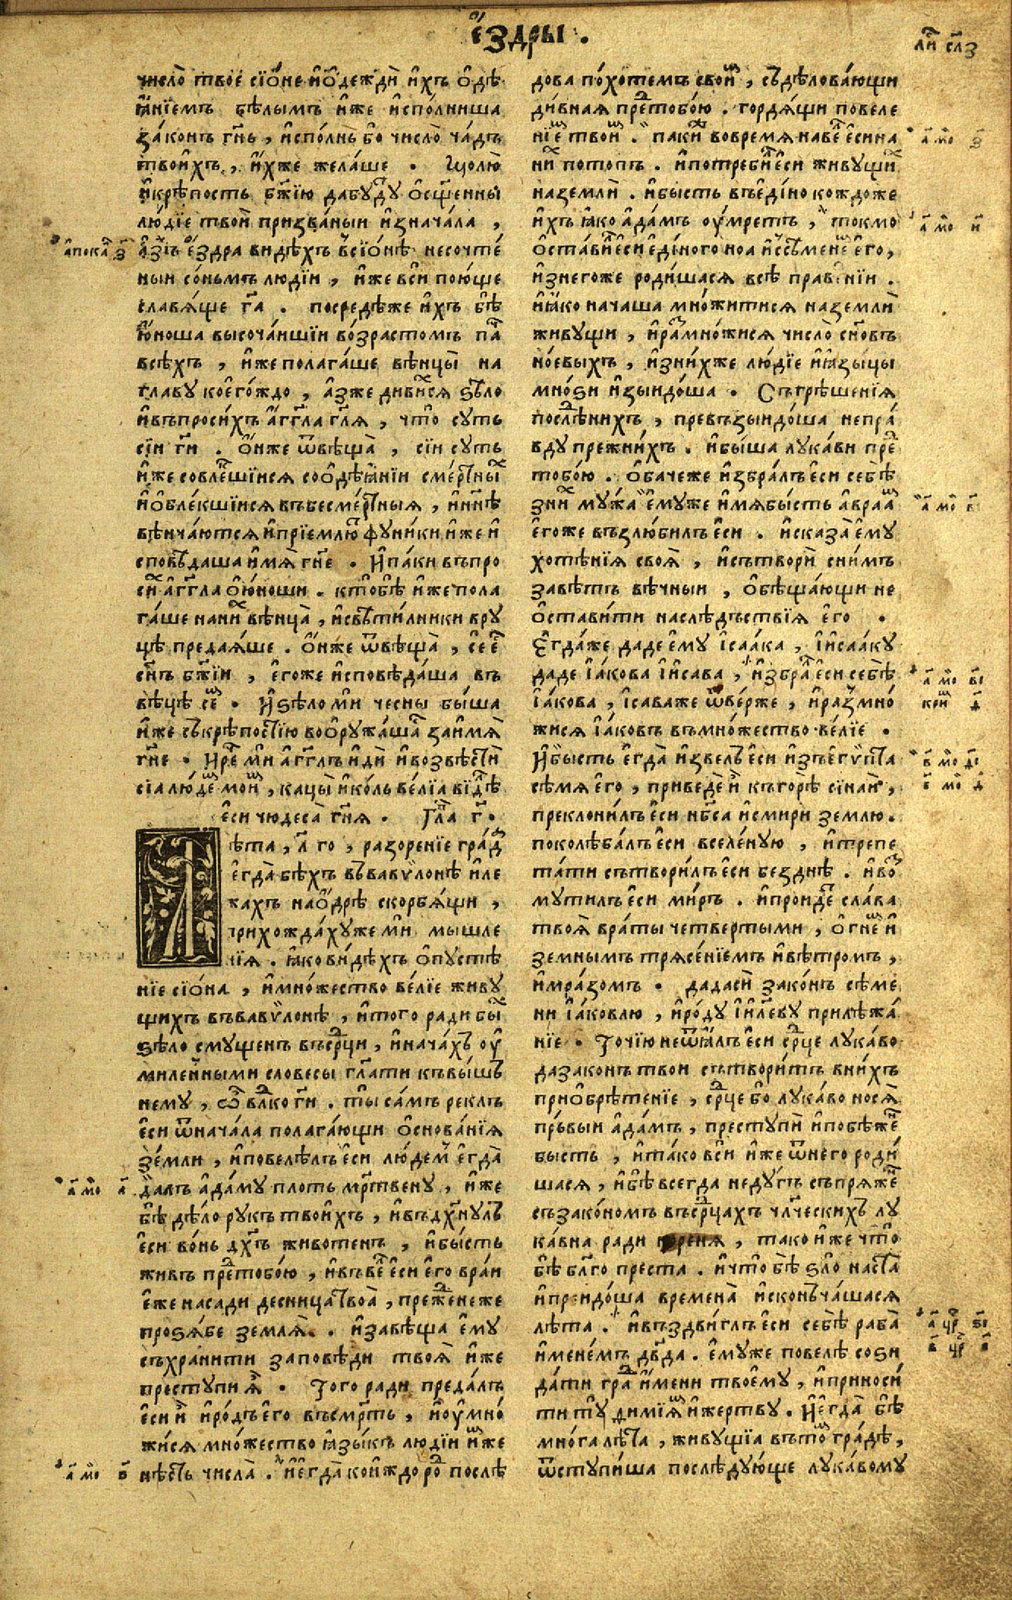 е҆́здры .
число̀ твоѐ сїѡ́не и҆ѻ҆деждѝ и҆́хъ ѻ҆дѣ
ѧ҆́нїемъ бѣ́лымъ и҆́же и҆спо́лниша
зако́нъ гн҃ь , и҆спо́лнь бо число̀ ча́дъ
твои́хъ , и҆́хже жела́ше . Цолю̀
и҆крѣ́пость бж҃їю дабу́ду ѻ҆сщ҃енны
лю́дїе твоѝ призва́ныи и҆знача́ла ,
а҆́зъ е҆́здра ви́дѣхъ в̾сїѡ́нѣ несочте́
ныи со́ньмъ лю́дїи , и҆́же всѝ пою́ще
славѧ́ще га҃ . посредѣ́же и҆́хъ бѣ̀
ю҆́ноша высоча́ишїи во́зрастомъ па
всѣ́хъ , и҆́же полага́ше вѣнцы̀ на
главу кое́гождо , а҆́зже диви́хсѧ ѕѣло
и҆въпроси́хъ а҆́гг҃ла гл҃ѧ , что̀ су́ть
сїи гн҃и . ѻ҆́нже ѿвѣща̀ , сїи су́ть
и҆́же совле́кшїисѧ соѻ҆дѣѧ́нїи сме́ртныⷯ
и҆ѻ҆бле́кшїисѧ въбесме́ртныѧ , и҆нн҃ѣ
вѣнча́ютсѧ и҆прїе́млю фу́ники и҆́же и҆
сповѣ́даша и҆́мѧ гн҃е . И҆па́ки въпро
сиⷯ а҆́гг҃ла ѻ҆ю҆́ноши . кто̀бѣ̀ и҆́же пола
га́ше нани́ⷯ вѣнца̀ , и҆свѣти́лники вру
цѣ предаѧ́ше . ѻ҆́нже ѿвѣща̀ , се́е
сн҃ъ бж҃їи , е҆го́же и҆сповѣ́даша въ
вѣ́цѣ сеⷨ . И҆ѕѣло мѝ че́сны бы́ша
и҆́же съкрѣ́постїю воѻ҆ружа́шасѧ за и҆́мѧ
гн҃е . И҆ре́ⷱ мѝ а҆́гг҃лъ и҆дѝ и҆возвѣстѝ
сїа лю́деⷨ мои́ⷨ , кацы̀ и҆ко́ль ве́лїѧ ви́дѣ
е҆си чюдеса̀ гн҃ѧ . Гла г҃ .
Лѣта , л҃ го , разоре́нїе гра́дⷹ
е҆гда̀ бѣ́хъ въвавѷло́нѣ и҆ле
жа́хъ наѻ҆дрѣ̀ скорбѧ́щи ,
прихожда́хуже мѝ мы́шле
нїѧ . ꙗ҆́ко ви́дѣхъ ѻ҆пустѣ
нїе сїѡ́на , и҆мно́жество ве́лїе живу́
щихъ въвавѷло́нѣ , и҆того̀ ради бы́ⷯ
ѕѣло смуще́нъ въсрⷣци , и҆нача́хъ оу҆
миле́нными словесы̀ гл҃ати къвы́шъ
нему , ѽ влⷣко гн҃и . ты̀ са́мъ рекл̀ъ
е҆си ѿнача́ла полага́ющи ѻ҆снова́нїѧ
земли̑ , и҆повелѣл̀ъ е҆си лю́деⷨ е҆гда̀
да́лъ а҆да́му пло́ть мр҃тве́ну , и҆́же
бѣ дѣ́ло ру́къ твои́хъ , и҆въдхну́лъ
е҆си во́нь дх҃ъ живо́тенъ , и҆бы́сть
живъ преⷣтобо́ю , и҆въве́ⷣ е҆си е҆го̀ вра́и
е҆́же насади̑ десни́ца твоа̀ , пре́жⷣенеже
проѕѧ́бе землѧ̀ . и҆завѣща̀ е҆му
съхрани́ти за́повѣди твоѧ̀ и҆́же
преступѝ ꙗ҆̀ . Того̀ ради преда́лъ
е҆си и҆̀ и҆ро́дъ е҆го̀ въсм҃рть , и҆ѹ҆мно́
жисѧ мно́жество ꙗ҆зы́къ лю́дїи и҆́мже
нѣ́сть числа̀ . и҆е҆гда̀ ко́иждо роⷣ послѣ
дова по́хотемъ свои́мⷨ , съдѣлова́ющи
ди́внаѧ преⷣтобо́ю . гордѧ́щи повеле
нїеⷨ твои́ⷨ . па́киⷤ вовре́мѧ наве́ⷣ е҆си на
ниⷯ пото́пъ . и҆потребиⷧ е҆си живу́щиⷯ
наземлѝ . и҆бы́сть въе҆ди́но кождо́же
и҆́хъ ꙗ҆́ко а҆да́мъ ѹ҆мре́ть , то́кмо
ѻ҆ста́виⷧ е҆си е҆ди́ного ноа и҆съсѣменеⷨ е҆го̀ ,
и҆знего́же роди́шасѧ всѣ̀ прав ни́и .
и҆ꙗ҆́ко нача́ша мно́житисѧ наземлѝ
живу́щи , и҆разⷨмно́жисѧ число̀ сн҃о́въ
но́евыхъ , и҆зни́хже лю́дїе и҆ꙗ҆зы́цы
мно́ѕи и҆зыидо́ша . Съгрѣше́нїѧ
послѣ́днихъ , превъзыидо́ша непра́
вду пре́жнихъ . и҆бы́ша лука́ви преⷣ
тобо́ю . ѻ҆ба́чеже и҆збра́лъ е҆си себѣ̀
зниⷯ му́жа е҆му́же и҆мѧ̀бы́сть авраа́ⷨ
е҆го́же възлюби́лъ е҆си . и҆сказа̀ е҆му̀
хотѣ́нїѧ своѧ̀ , и҆сътворѝ сни́мъ
завѣ́тъ вѣ́чныи , ѻ҆бѣща́ющи не
ѻ҆ста́вити наслѣ́дьствїѧ е҆го̀ .
Е҆гда́же даде е҆му і҆саа́ка , і҆и҆саа́ку
даде і҆а́кова і҆и҆са́ва , и҆збраⷧ е҆си себѣ̀
і҆а́кова , і҆са́важе ѿве́рже , и҆размно́
жисѧ і҆а́ковъ въмно́жество ве́лїе .
И҆бы́сть е҆гда̀ и҆зве́лъ е҆си и҆зъе҆гѷ́пта
сѣ́мѧ е҆го̀ , приведе и҆̀ къгорѣ̀ сїна́и ,
преклони́лъ е҆си нб҃са̀ и҆смири зе́млю .
поколѣба́лъ е҆си вселе́ную , и҆трепе
та́ти сътвори́лъ е҆си бе́зднѣ . и҆воⷥ
мути́лъ е҆си ми́ръ . и҆проиде́ⷣ сла́ва
твоѧ̀ вра́ты четве́ртыми , ѻ҆гнеⷨ и҆
земны́мъ трѧсе́нїемъ и҆вѣ́тромъ ,
и҆мра́зомъ . дада́си зако́нъ сѣ́ме
ни і҆а́ковлю , и҆ро́ду і҆и҃леву прилѣжа́
нїе . Точїю неѿѧ́лъ е҆си срⷣце лука́во
дазако́нъ тво́и сътвори́тъ вни́хъ
приѻ҆брѣте́нїе , срⷣце бо лука́во носѧ̀
пе́рвыи а҆да́мъ , преступѝ и҆побѣ́жеⷩ
бы́сть , и҆та́ко всѝ и҆́же ѿнего̀ роди́
шасѧ , и҆бѣ̀ всегда̀ неду́гъ съпрѧ́жеⷩ
съзако́номъ въсрⷣцахъ чл҃ческихъ лу
ка́вна ради , та́ко и҆́же что̀
бѣ бл҃го преста . и҆что̀ бѣ̀ ѕло̀ наста̀
и҆преидо́ша времена̀ и҆сконъча́шасѧ
лѣта . и҆въздви́глъ е҆си себѣ̀ раба̀
и҆́менемъ дв҃да . е҆му́же повелѣ̀ соѕи
да́ти граⷣ и҆́мени твое́му , и҆приноси́
ти ту̀ ѳимїѧⷨ и҆же́ртву . И҆е҆гда̀ бѣ̀
мно́га лѣ́та , живу́щїа въто́мⷨ гра́дѣ ,
ѿступи́ша послѣ́дующе лука́вому